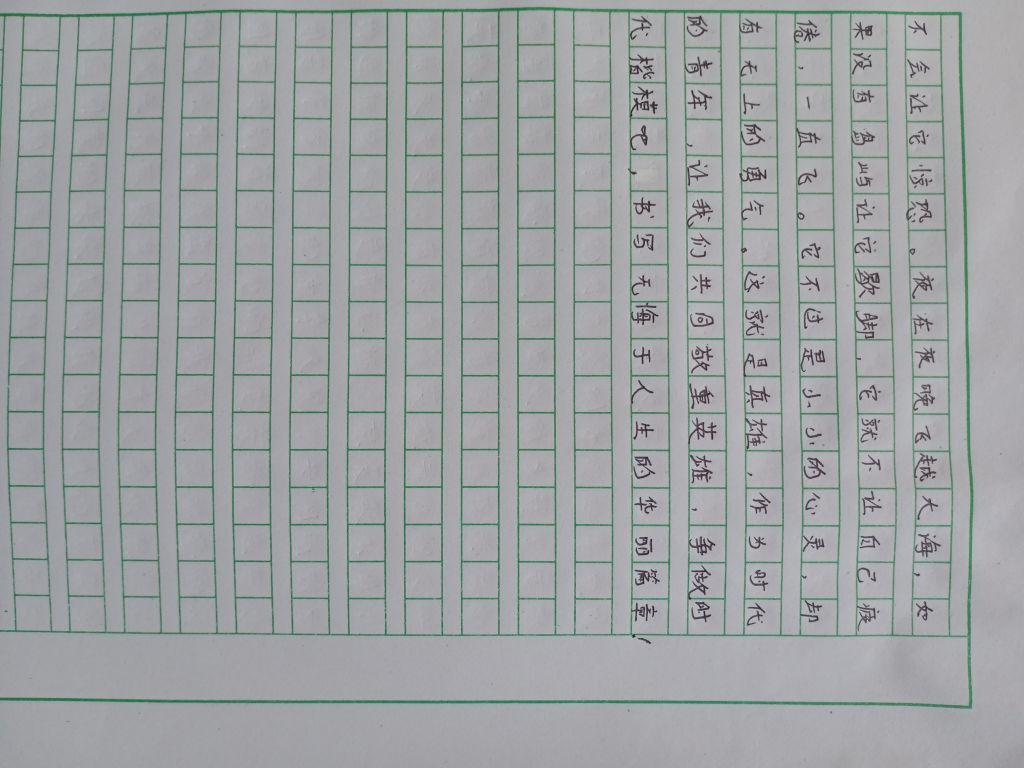 不会让它惊恐。夜在夜晚飞越大海，如
果没有岛屿让它歇脚，它就不让自己疲
倦，一直飞。它不过是小小的心灵，却
有无上的勇气。这就是真雄，作为时代
的青年，让我们共同敬重英雄，争做时
代楷模吧，书写无悔于人生的华丽篇章！